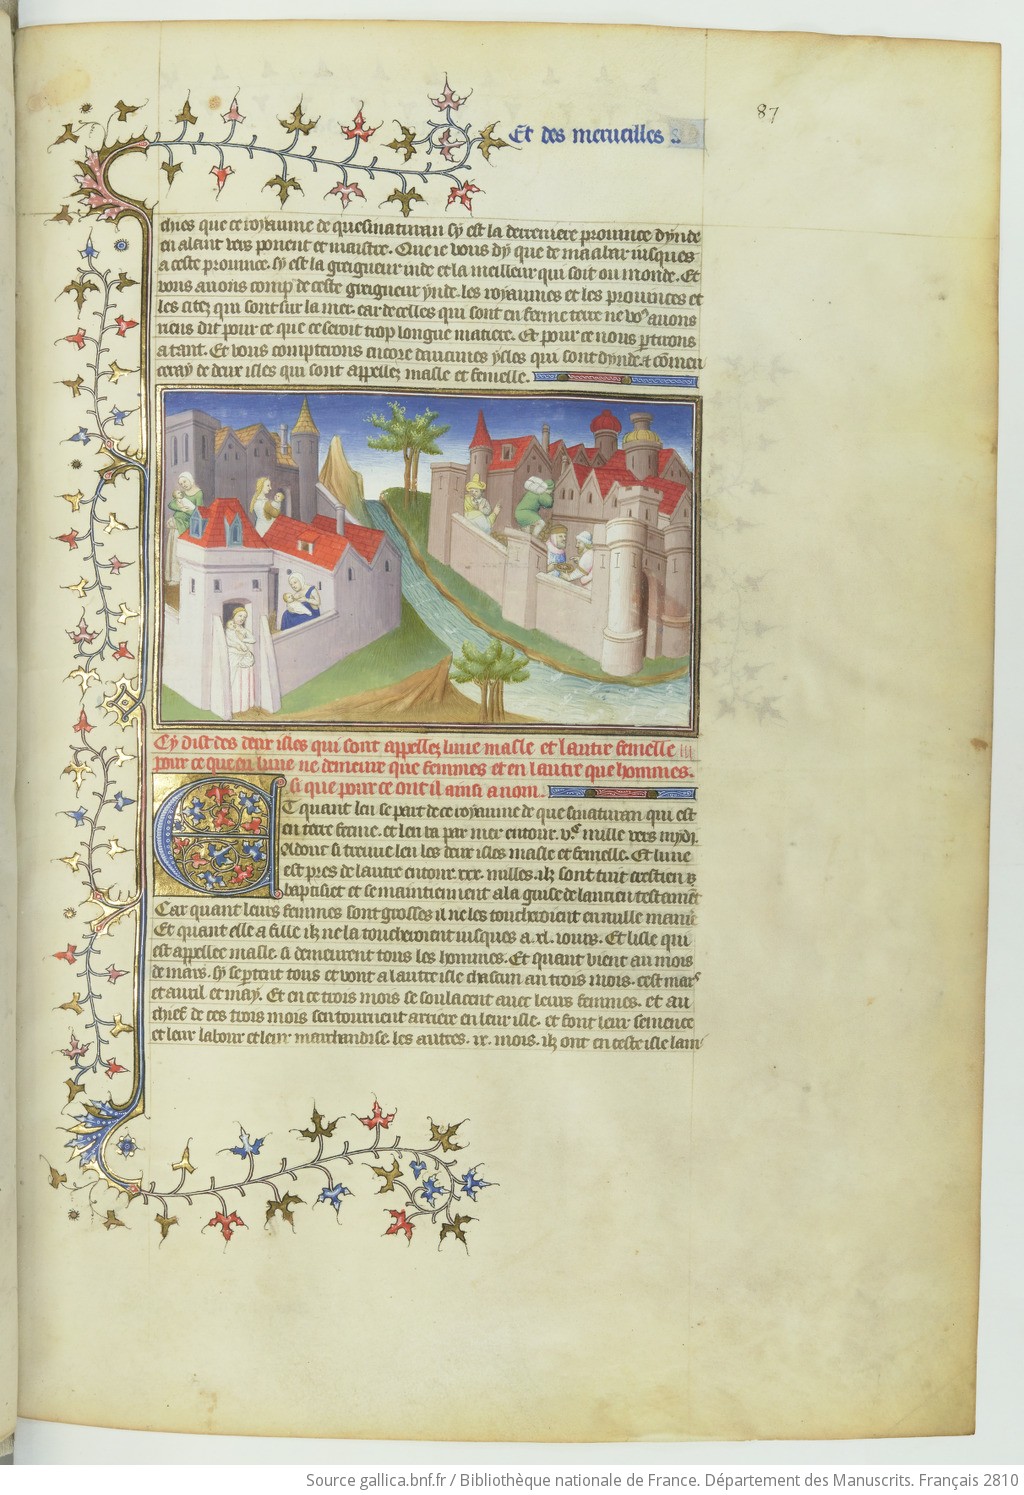 Et des merueilles
87
chies que ce royaume de quesmaturan sy est la derreniere prouince dynde
en alant vers ponent et maistre. Que ie vous dy que de maabar iusques
a ceste prouince. sy est la greigneur inde et la meilleur qui soit ou monde. Et
vous auons compte de ceste greigneur ynde. les royaumes et les prouinces et
les citez qui sont sur la mer. car de celles qui sont en ferme terre ne vous auons
riens dit pour ce que ce seroit trop longue matiere. Et pour ce nous partirons
atant. Et vous compterons encore daucunes ysles qui sont dynde. et comen
ceray de deux isles qui sont appellez masle et femelle.
Cy dist des deux isles qui sont appellez lune masle et lautre femelle
pour ce que en lune ne demeure que femmes et en lautre que hommes.
si que pour ce ont il ainsi a nom.
Et quant len se part de ce royaume de quesmaturan qui est
en terre ferme. et len va par mer entour. vc mille vers mydi.
Adont si treuue len les deux isles masle et femelle. Et lune
est pres de lautre entour. xxx. milles. ilz sont tuit crestien
baptisiet et se maintiennent a la guise de lancien testament
Car quant leurs femmes sont grosses il ne les toucheroient en nulle maniere
Et quant elle a fille ilz ne la toucheroient iusques a. xl. iours. Et lisle qui
est appellee masle. si demeurent tous les hommes. Et quant vient au mois
de mars. sy se partent tous et vont a lautre isle chascun an trois mois. cest mars
et auril et may. Et en ce trois mois se soulacent auec leurs femmes. et au
chief de ces trois mois sen tournent arriere en leur isle. et font leur semence
et leur labour et leur marchandise. les autres. ix. mois. ilz ont en ceste isle lam
Source gallica.bnf.fr / Bibliothèque nationale de France. Département des Manuscrits. Français 2810